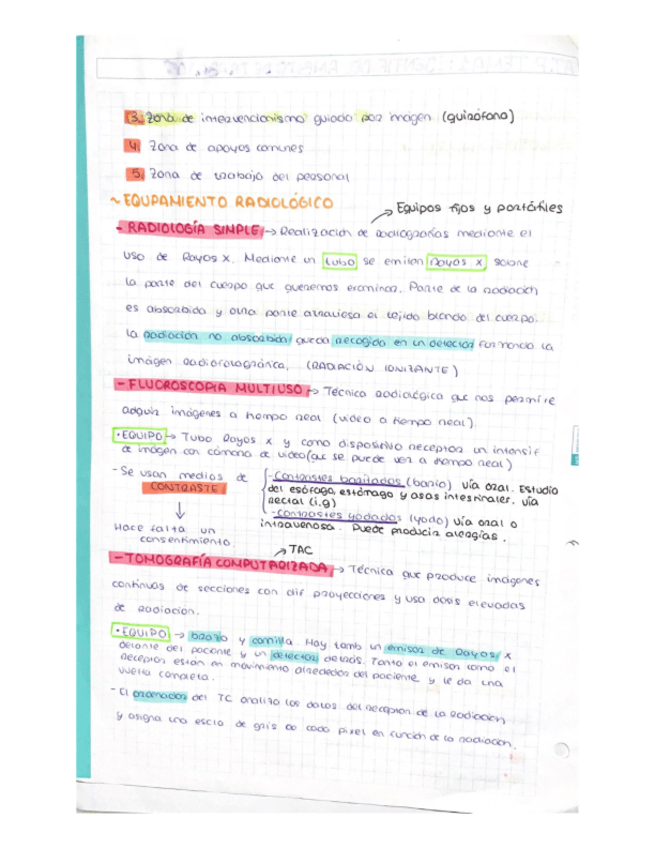 3. Zona de intervencionismo guiado por imagen (quirófono)
4. Zona de apoyos comunes
5. Zona de trabajo del personal
~ EQUPAMIENTO RADIOLÓGICO
→ Equipos fijos y portátiles
- RADIOLOGÍA SIMPLE → Realización de Radiografías mediante el
uso de Rayos X. Mediante un tubo se emiten Rayos X sobre
la parte del cuerpo que queremos examinar. Parte de la radiación
es absorbida y otra parte atraviesa el tejido blando del cuerpo.
La radiación no absorbida queda recogida en un detector formando la
imágen radiofotográfica. (RADIACIÓN IONIZANTE)
- FLUOROSCOPIA MULTIUSO → Técnica radiológica que nos permite
adquirir imágenes a tiempo real (video a tiempo real).
• EQUIPO → Tubo Rayos x y como dispositivo receptor un intensif
de imagen con cámara de video (que se puede ver a tiempo real)
- Se usan medios de
CONTRASTE
- Contrastes baritados (bario) Vía oral. Estudio
del esófago, estómago y asas intestinales. Vía
rectal (i.g)
- Contrastes yodados (yodo) Vía oral o
intravenosa. Puede producir alergias.
↓
Hace falta un
consentimiento.
→ TAC
- TOMOGRAFÍA COMPUTARIZADA → Técnica que produce imágenes
continuas de secciones con dif proyecciones y usa dosis elevadas
de Radiación.
• EQUIPO → brazo y camilla. Hay tamb un emisor de Rayos x
delante del paciente y un detector detrás. Tanto el emisor como el
receptor están en movimiento alrededor del paciente y le da una
vuelta completa.
- El ordenador del TC analiza los datos del receptor de la radiación
y asigna una escla de gris a cada pixel en función de la radiación.